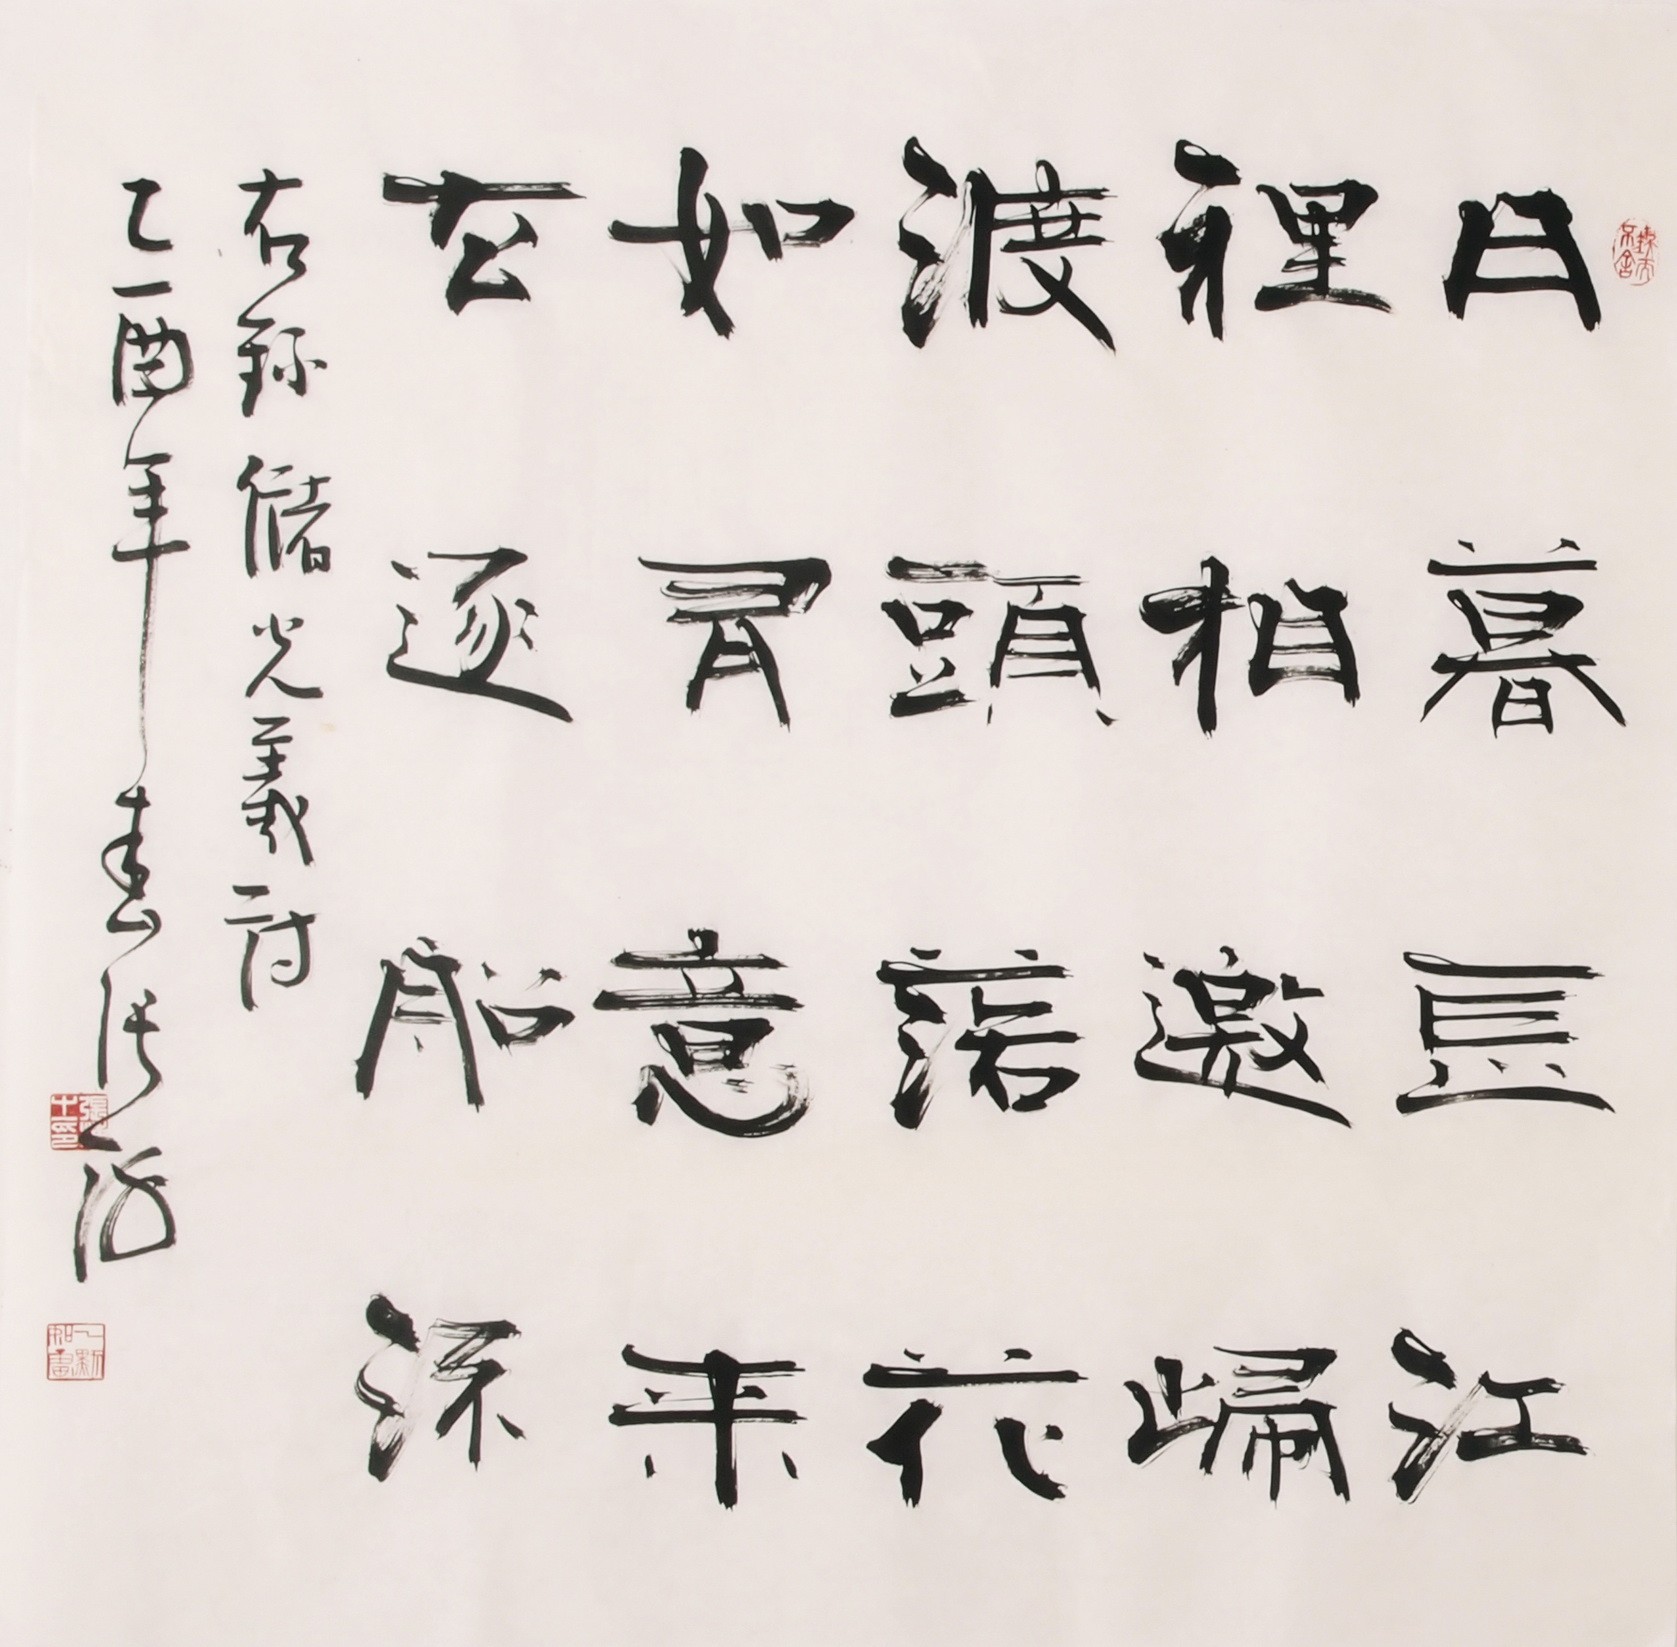 日暮長江
裡相邀歸
渡頭落花
如有意来
去逐船流
右錄儲光義詩
乙酉年春張